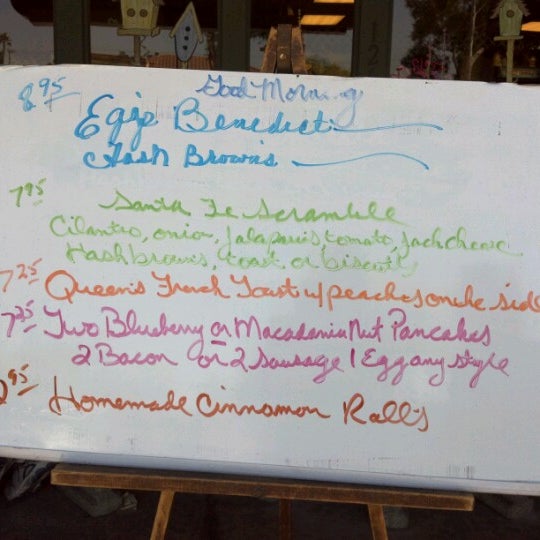 Good Morning
8.95 Eggs Benedict
Hash Browns
7.95 Santa Fe Scramble
Cilantro, onion, Jalapanis, tomato, Jack cheese
Hashbrowns, toast or biscuits
7.25 Queen's French Toast w/ peaches on the side
7.25 Two Blueberry or Macadamia Nut Pancakes
2 Bacon or 2 Sausage 1 Egg any style
.95 Homemade Cinnamon Rolls